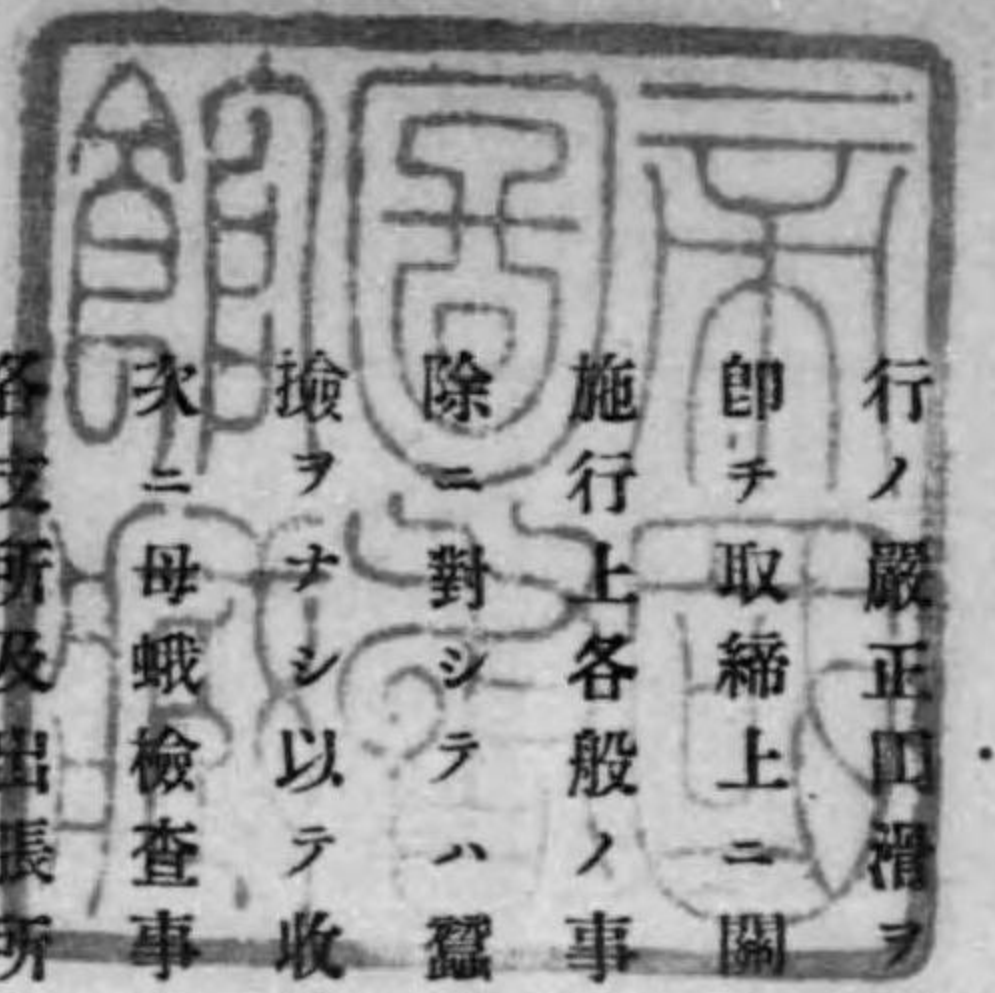 行ノ嚴正円滑ヲ
卽チ取締上ニ關
施行上各般ノ事
除ニ對シテハ蠶
撿ヲナシ以テ收
次ニ母蛾檢査事
各支所及出張所
帝國
圖書
館藏